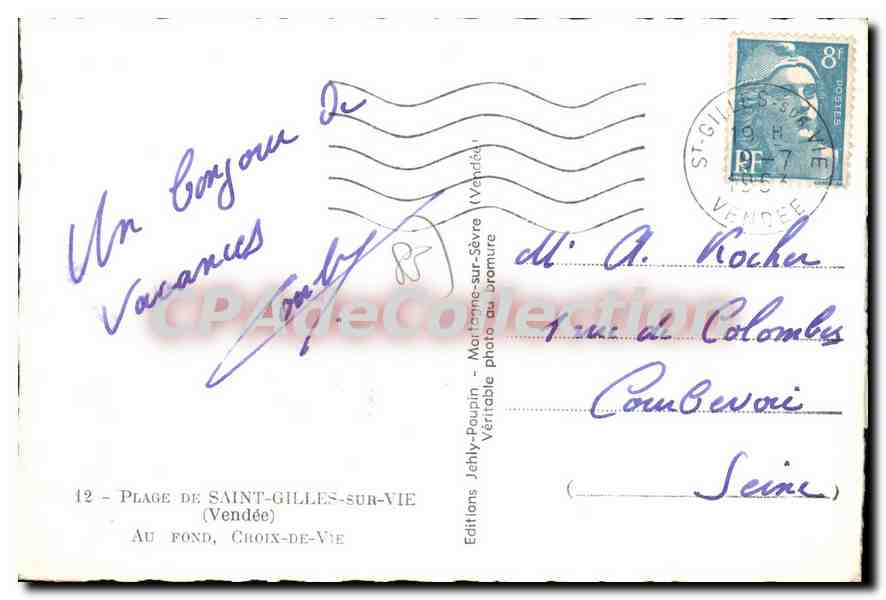 Un bonjour de
vacances
85
12 - PLAGE DE SAINT-GILLES-SUR-VIE
(Vendée)
AU FOND, CROIX-DE-VIE
Editions Jehly-Poupin - Mortagne-sur-Sèvre (Vendée)
Véritable photo au bromure
8F
POSTES
RF
ST-GILLES-SUR-VIE
19 H
-7
VENDEE
Mr A. Rocher
1 rue de Colombes
Courbevoie
(Seine)
CPADeCollection